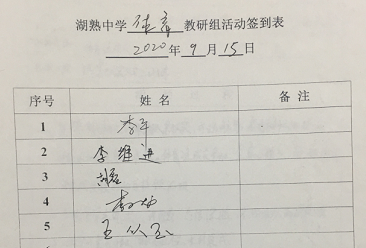 湖熟中学体育教研组活动签到表
2020年9月15日
序号 姓名 备注
1 李军
2 李维进
3
4
5 王从玉